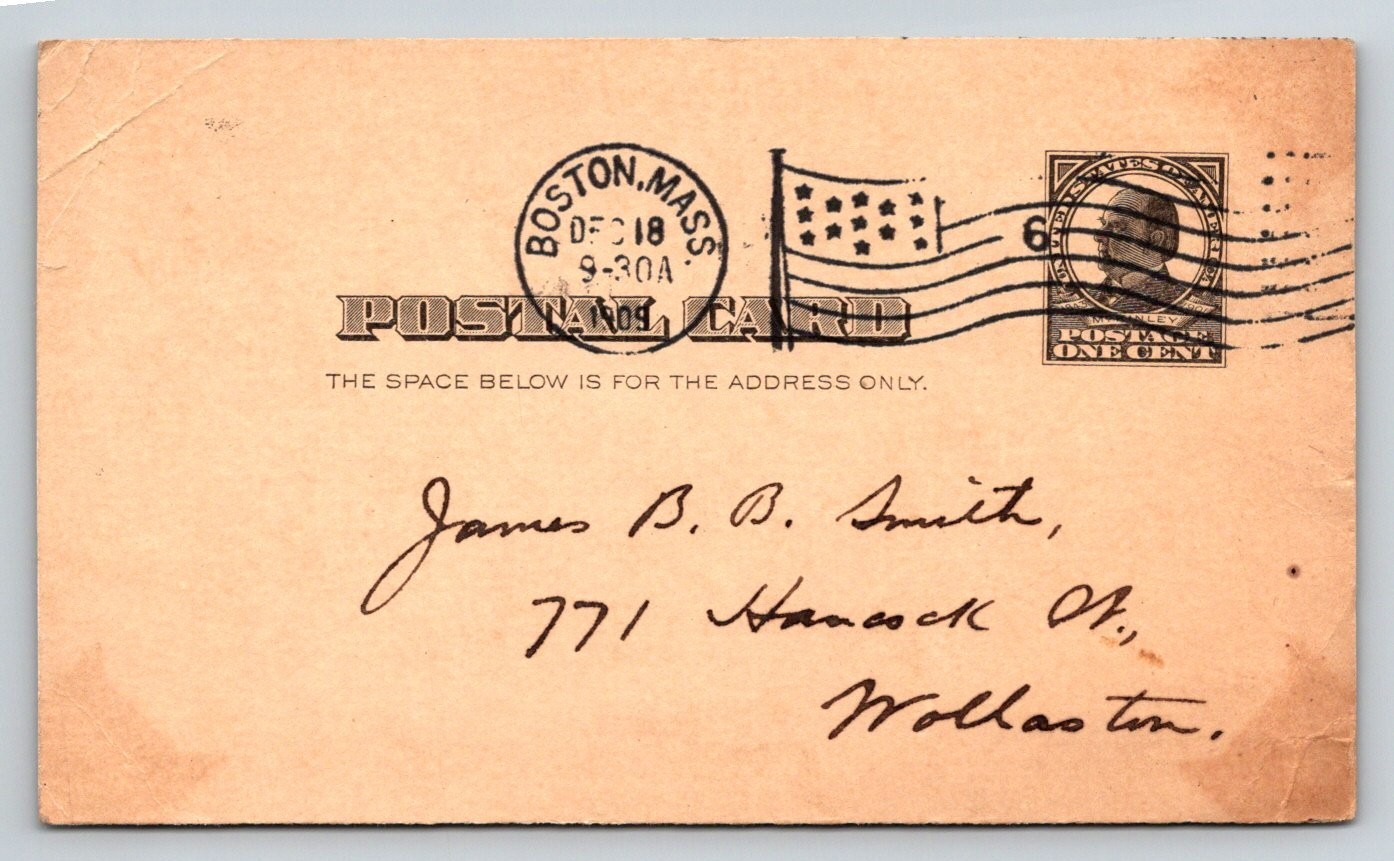 BOSTON, MASS.
DEC 18
9-30A
1909
6
UNITED STATES OF AMERICA
McKINLEY
POSTAGE
ONE CENT
POSTAL CARD
THE SPACE BELOW IS FOR THE ADDRESS ONLY.
James B. B. Smith,
771 Hancock St.,
Wollaston.